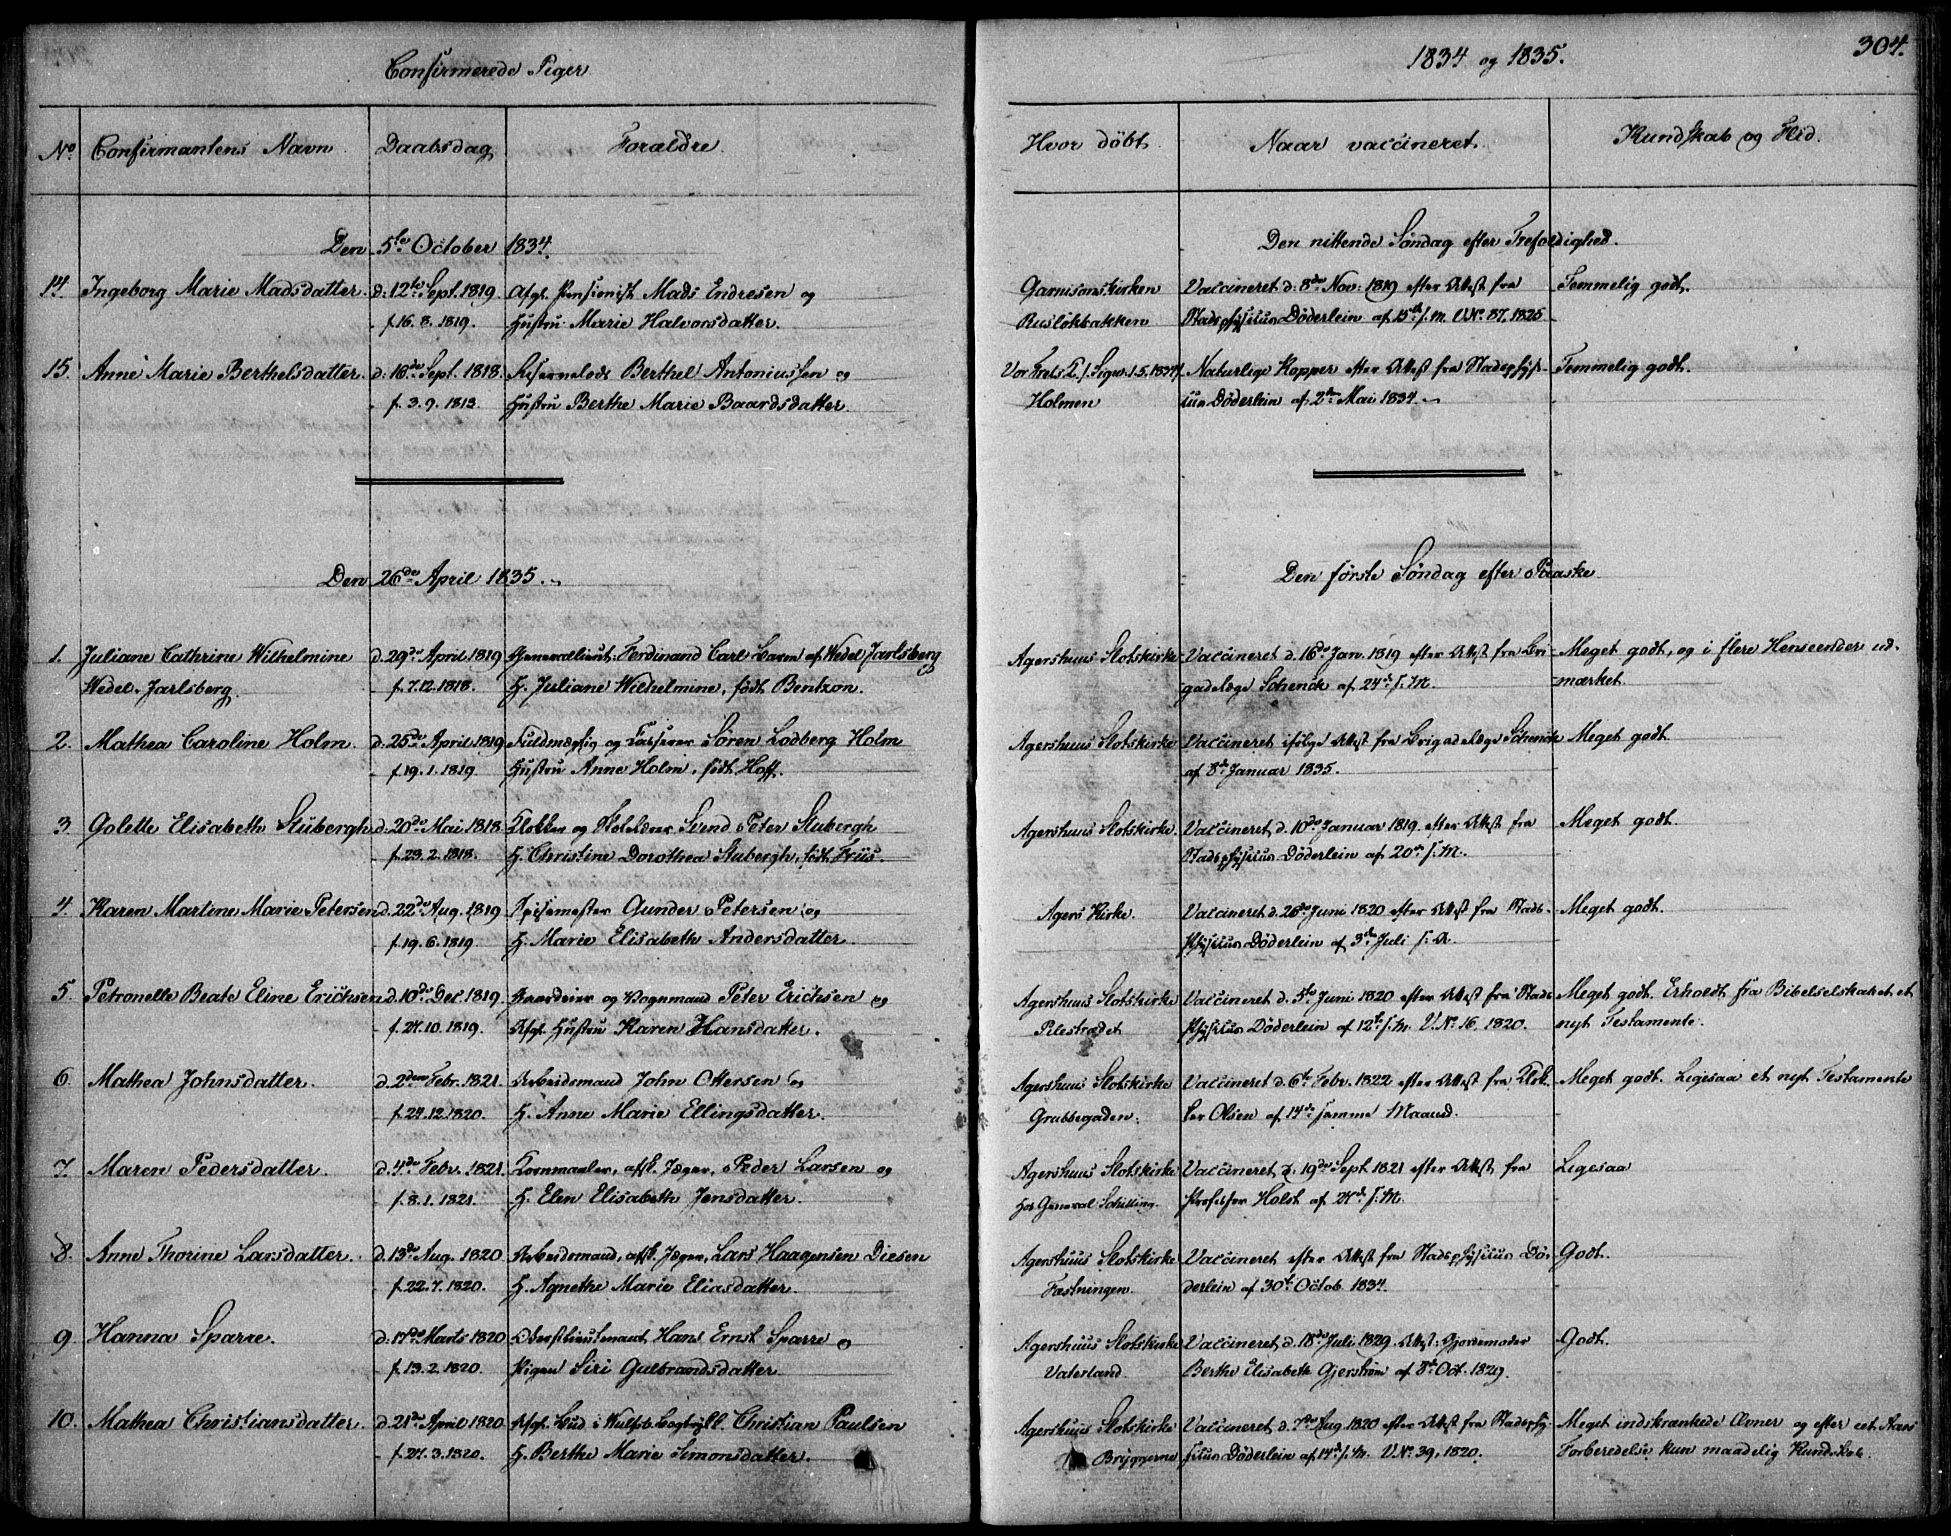 Confirmerede Piger
1834 og 1835.
304.
No Confirmantens Navn Daabsdag Forældre Hvor döbt. Naar vaccineret. Kundskab og Flid.
Den 5te October 1834. Den nittende Søndag efter Trefoldighed.
14. Ingeborg Marie Madsdatter. d: 12te Sept. 1819. Afg. Pensionist Mads Endresen og Garnisonskirken Vaccineret d: 8de Nov: 1819 efter Attest fra Temmelig godt.
f. 16. 8. 1819. Hustru Marie Halvorsdatter. Rusløkbakken Stadsphysicus Döderlein af 15de s. M. V. No. 87. 1825
15. Anne Marie Berthelsdatter. d: 18de Sept. 1818. Berthel Antoniussen og Naturlige Kopper efter Attest fra Stadsphysi- Temmelig godt.
f. 3. 9. 1813. Hustru Berthe Marie Baardsdatter. Holmen cus Döderlein af 2den Mai 1834.
Den 26de April 1835. Den förste Søndag efter Paaske.
1. Juliane Cathrine Wilhelmine d. 29de April 1819 Generallieut. Ferdinand Carl Baron af Wedel Jarlsberg Agershuus Slotskirke Vaccineret d. 16de Jan. 1819 efter Attest fra Bri- Meget godt, og i flere Henseender ud-
Wedel-Jarlsberg. f. 7. 12. 1818. H. Juliane Wilhelmine, født Bentzon. gadelæge Schenck af 24de s. M. mærket.
2. Mathea Caroline Holm. d. 25de April 1819 Fuldmægtig og Kasserer Sören Lodberg Holm Agershuus Slotskirke Vaccineret ifölge Attest fra Brigadelæge Schenck Meget godt.
f. 19. 1. 1819. Hustru Anne Holm, født Hoff. af 8de Januar 1835.
3. Golette Elisabeth Stubergh d. 20de Mai 1818 Klokker og Skolelærer Svend Peter Stubergh Agershuus Slotskirke. Vaccineret d. 10de Januar 1819 efter Attest fra Meget godt.
f. 23. 2. 1818. H. Christine Dorothea Stubergh, født Friis. Stadsphysicus Döderlein af 20de s. M.
4. Karen Martine Marie Petersen d. 22de Aug. 1819 Spisemester Gunder Petersen og Agers Kirke. Vaccineret d. 26de Juni 1820 efter Attest fra Stads- Meget godt.
f. 19. 6. 1819. H. Marie Elisabeth Andersdatter. Physicus Döderlein af 3de Juli s. A.
5. Petronelle Beate Eline Erichsen d. 10de Dec. 1819. Gaardeier og Vognmand Peter Erichsen og Agershuus Slotskirke Vaccineret d. 5te Juni 1820 efter Attest fra Stads- Meget godt. Erholdt fra Bibelselskabet et
f. 27. 10. 1819. Afg. Hustru Karen Hansdatter. Pilestrædet Physicus Döderlein af 12te s. M. V. No. 16. 1820. nyt Testamente.
6. Mathea Johnsdatter. d. 2den Febr. 1821. Arbeidsmand John Ottersen og Agershuus Slotskirke Vaccineret d. 6te Febr. 1822 efter Attest fra Klok- Meget godt. Ligesaa et nyt Testamente
f. 27. 12. 1820. H. Anne Marie Ellingsdatter. Grubbegaden. ker Olsen af 14de samme Maaned.
7. Maren Pedersdatter. d. 4de Febr. 1821. Kornmaaler, afsk. Jæger, Peder Larsen og Agershuus Slotskirke Vaccineret d. 19de Sept. 1821 efter Attest fra Ligesaa
f. 8. 1. 1821. H. Elen Elisabeth Jensdatter. Hos General Schilling. Professor Holst af 24de s. M.
8. Anne Thorine Larsdatter. d. 13de Aug. 1820 Arbeidsmand, afsk. Jæger, Lars Haagensen Diesen Agershuus Slotskirke Vaccineret efter Attest fra Stadsphysicus Dö- Godt.
f. 22. 7. 1820. H. Agnethe Marie Eliasdatter. Fæstningen. derlein af 30te Octob. 1834.
9. Hanna Sparre. d. 17de Marts 1820 Oberstlieutenant Hans Ernst Sparre og Agershuus Slotskirke Vaccineret d. 18de Juli 1829. Attest: Gjordemoder Godt.
f. 13. 2. 1820. Pigen Siri Gulbrandsdatter. Vaterland. Berthe Elisabeth Gjerström af 8de Oct. 1829.
10. Mathea Christiansdatter. d. 21de April 1820 Afg. Bud i Christian Paulsen Agershuus Slotskirke Vaccineret d. 7de Aug. 1820 efter Attest fra Stadsphy- Meget indskrænkede Evner og efter eet Aars
f. 27. 3. 1820. H. Berthe Marie Simonsdatter. Bryggerne sicus Döderlein af 14de s. M. V. No. 39. 1820. Forberedelse kun maadelig Kundskab.